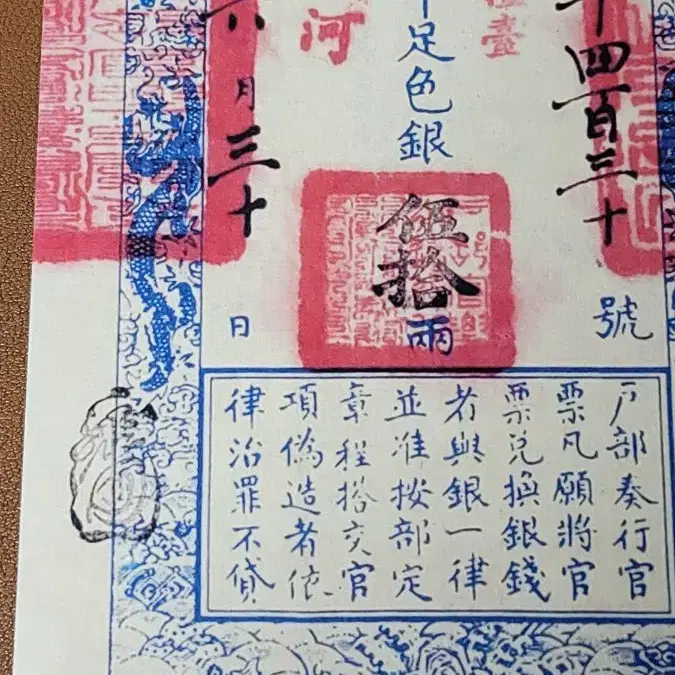 四百三十號
臺
足色銀伍拾兩
河
月三十日
戶部奏行官
票凡願將官
票兌換銀錢
者與銀一律
並准按部定
章程搭交官
項偽造者依
律治罪不貸